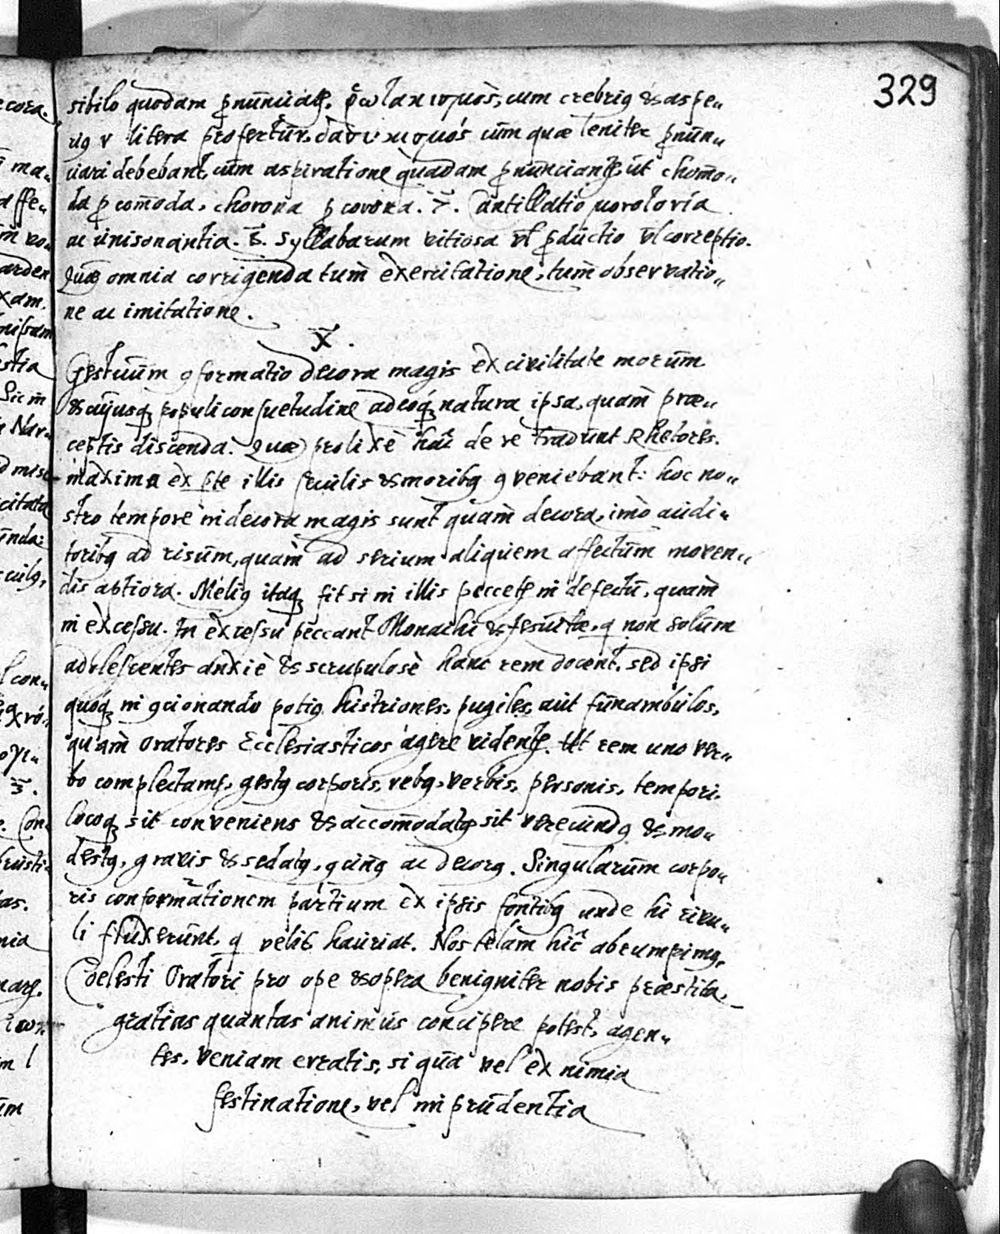 329
sibilo quodam pnunciatr. ῥωτακισμὸς, cum crebrius & aspe-
rius r litera profertur, δασυσμὸς cum quae leniter pnun-
ciari debebant, cum aspiratione quadam pnunciantr, ut chommo-
da p commoda, chorona p corona. 7. Cantillatio μονοτονία
ac unisonantia. 8. Syllabarum vitiosa vl pductio vl correptio.
Quae omnia corrigenda tum exercitatione, tum observatio-
ne ac imitatione.
X.
Gestuum conformatio decora magis ex civilitate morum
& cujusq populi consuetudine adeoq natura ipsa, quam prae-
ceptis discenda. Quae prolixè hac de re tradunt Rhetores.
maxima ex pte illis seculis & moribus conveniebant: hoc no-
stro tempore indecora magis sunt quàm decora, imò audi-
toribus ad risum, quàm ad serium aliquem affectum moven-
dis aptiora. Melius itaq fit si in illis peccetr in defectu, quàm
in excessu. In excessu peccant Monachi & Jesuitae, q non solùm
adolescentes anxiè & scrupulosè hanc rem docent, sed ipsi
quoq in concionando potius histriones, pugiles, aut funambulos,
quàm Oratores Ecclesiasticos agere videntr. Ut rem uno ver-
bo complectamr, gestus corporis, rebus, verbis, personis, tempori,
locoq sit conveniens & accommodatus sit verecundus & mo-
destus, gravis & sedatus, concinnus ac decorus. Singularum corpo-
ris conformationem partium ex ipsis fontibus unde hi rivu-
li fluxerunt, q velit hauriat. Nos telam hîc abrumpimus,
Coelesti Oratori pro ope & opera benigniter nobis praestita,
gratias quantas animus concipere potest, agen-
tes, veniam erratis, si qua vel ex nimia
festinatione, vel imprudentia